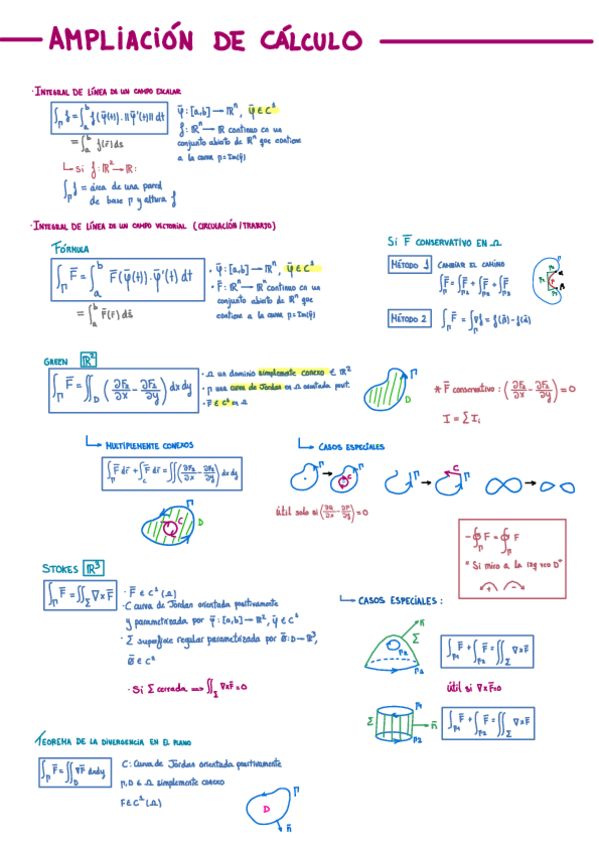 AMPLIACIÓN DE CÁLCULO
· INTEGRAL DE LÍNEA DE UN CAMPO ESCALAR
∫_Γ f = ∫_a^b f(φ̄(t)) · ||φ̄'(t)|| dt
= ∫_a^b f(r̄) ds
φ̄: [a,b] → ℝⁿ, φ̄ ∈ C¹
f: ℝⁿ → ℝ continuo en un
conjunto abierto de ℝⁿ que contiene
a la curva Γ = Im(φ̄)
Si f: ℝ² → ℝ:
∫_Γ f = área de una pared
de base Γ y altura f
· INTEGRAL DE LÍNEA DE UN CAMPO VECTORIAL (CIRCULACIÓN/TRABAJO)
FÓRMULA
∫_Γ F̄ = ∫_a^b F̄(φ̄(t)) · φ̄'(t) dt
= ∫_a^b F̄(r̄) ds̄
• φ̄: [a,b] → ℝⁿ, φ̄ ∈ C¹
• F̄: ℝⁿ → ℝⁿ continuo en un
conjunto abierto de ℝⁿ que
contiene a la curva Γ = Im(φ̄)
Si F̄ CONSERVATIVO EN Ω
MÉTODO 1 CAMBIAR EL CAMINO
∫_Γ F̄ = ∫_Γ1 F̄ + ∫_Γ2 F̄ + ∫_Γ3 F̄
MÉTODO 2 ∫_Γ F̄ = ∫_Γ ∇f = f(B̄) - f(Ā)
GREEN ℝ²
∫_Γ F̄ = ∬_D (∂F₂/∂x - ∂F₁/∂y) dx dy
· Ω un dominio simplemente conexo ∈ ℝ²
· Γ una curva de Jordan en Ω orientada posit.
· F̄ ∈ C¹ en Ω
Γ
D
* F̄ conservativo: (∂F₂/∂x - ∂F₁/∂y) = 0
I = Σ Iᵢ
MULTIPLEMENTE CONEXOS
∫_Γ F̄ dr̄ + ∫_C F̄ dr̄ = ∬ (∂F₂/∂x - ∂F₁/∂y) dx dy
Γ
C
D
CASOS ESPECIALES
Γ
Γ
C
Γ
C
Γ
útil solo si (∂Q/∂x - ∂P/∂y) = 0
-∮_Γ F = ∮_Γ F
"Si miro a la izq veo D"
+ -
STOKES ℝ³
∫_Γ F̄ = ∬_Σ ∇×F̄
· F̄ ∈ C¹(Ω)
· C curva de Jordan orientada positivamente
y parametrizada por φ̄: [a,b] → ℝ², φ̄ ∈ C¹
· Σ superficie regular parametrizada por Φ̄: D → ℝ³,
Φ̄ ∈ C²
· Si Σ cerrada ⟹ ∬_Σ ∇×F̄ = 0
CASOS ESPECIALES:
n̄
Σ
Γ2
Γ1
∫_Γ1 F̄ + ∫_Γ2 F̄ = ∬_Σ ∇×F̄
útil si ∇×F̄=0
Γ1
Σ
n̄
Γ2
∫_Γ1 F̄ + ∫_Γ2 F̄ = ∬_Σ ∇×F̄
TEOREMA DE LA DIVERGENCIA EN EL PLANO
∫_Γ F̄ = ∬_D ∇F̄ dxdy
C: Curva de Jordan orientada positivamente
Γ, D ∈ Ω simplemente conexo
F ∈ C¹(Ω)
Γ
D
n̄